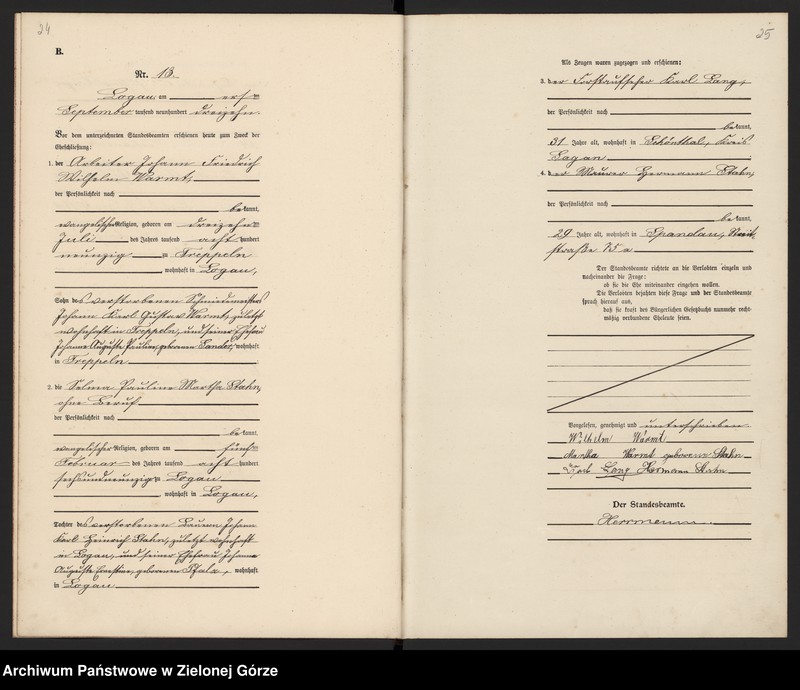 24
B.
Nr. 13.
Logau, am erst en
September tausend neunhundert dreizehn.
Vor dem unterzeichneten Standesbeamten erschienen heute zum Zweck der
Eheschließung:
1. der Arbeiter Johann Friedrich
Wilhelm Warmt,
der Persönlichkeit nach
be kannt,
evangelischer Religion, geboren am dreizehn ten
Juli des Jahres tausend acht hundert
neunzig zu Treppeln
, wohnhaft in Logau,
Sohn des verstorbenen Schmiedemeisters
Johann Karl Gustav Warmt, zuletzt
wohnhaft in Treppeln, und seiner Ehefrau
Johanne Auguste Pauline, geborenen Sander, wohnhaft
in Treppeln
2. die Selma Pauline Martha Stahn,
ohne Beruf
der Persönlichkeit nach
be kannt,
evangelischer Religion, geboren am fünf ten
Februar des Jahres tausend acht hundert
sechsundneunzig zu Logau
, wohnhaft in Logau,
Tochter des verstorbenen Bauern Johann
Karl Heinrich Stahn, zuletzt wohnhaft
in Logau, und seiner Ehefrau Johanne
Auguste Ernestine, geborenen , wohnhaft
in Logau
25
Als Zeugen waren zugezogen und erschienen:
3. der Forstaufseher Karl Lang,
der Persönlichkeit nach
be kannt,
31 Jahre alt, wohnhaft in Schönthal, Kreis
Sagan
4. der Maurer Hermann Stahn,
der Persönlichkeit nach
be kannt,
29 Jahre alt, wohnhaft in Spandau,
straße
Der Standesbeamte richtete an die Verlobten einzeln und
nacheinander die Frage:
ob sie die Ehe miteinander eingehen wollen.
Die Verlobten bejahten diese Frage und der Standesbeamte
sprach hierauf aus,
daß sie kraft des Bürgerlichen Gesetzbuchs nunmehr recht-
mäßig verbundene Eheleute seien.
Vorgelesen, genehmigt und unterschrieben
Wilhelm Warmt
Martha Warmt geborene Stahn
Karl Lang Hermann Stahn
Der Standesbeamte.
Herrmann.
Archiwum Państwowe w Zielonej Górze